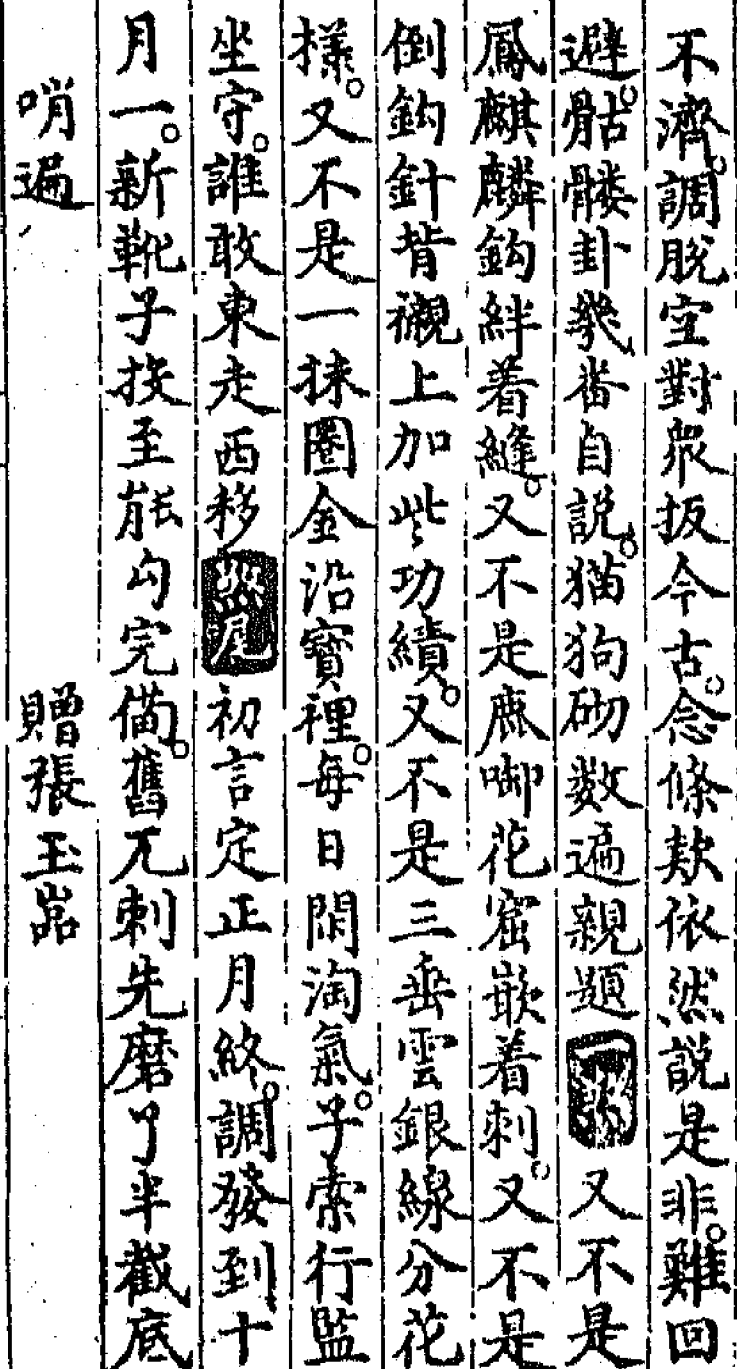 不濟。調脫空對衆扳今古。念條款依然說是非。難回
避。骷髅卦幾番自説。猫狗砌数遍親題 又不是
鳳麒麟鈎絆着縫。又不是鹿啣花窟嵌着刺。又不是
倒鈎針背襯上加些功績。又不是三垂雲銀線分花
樣。又不是一抹圈金沿寶裡。每日閑淘氣。子索行監
坐守。誰敢東走西移 初言定正月終。調發到十
月一。新靴子投至能勾完備。舊兀剌先磨了半截底
哨遍 贈張玉嵓